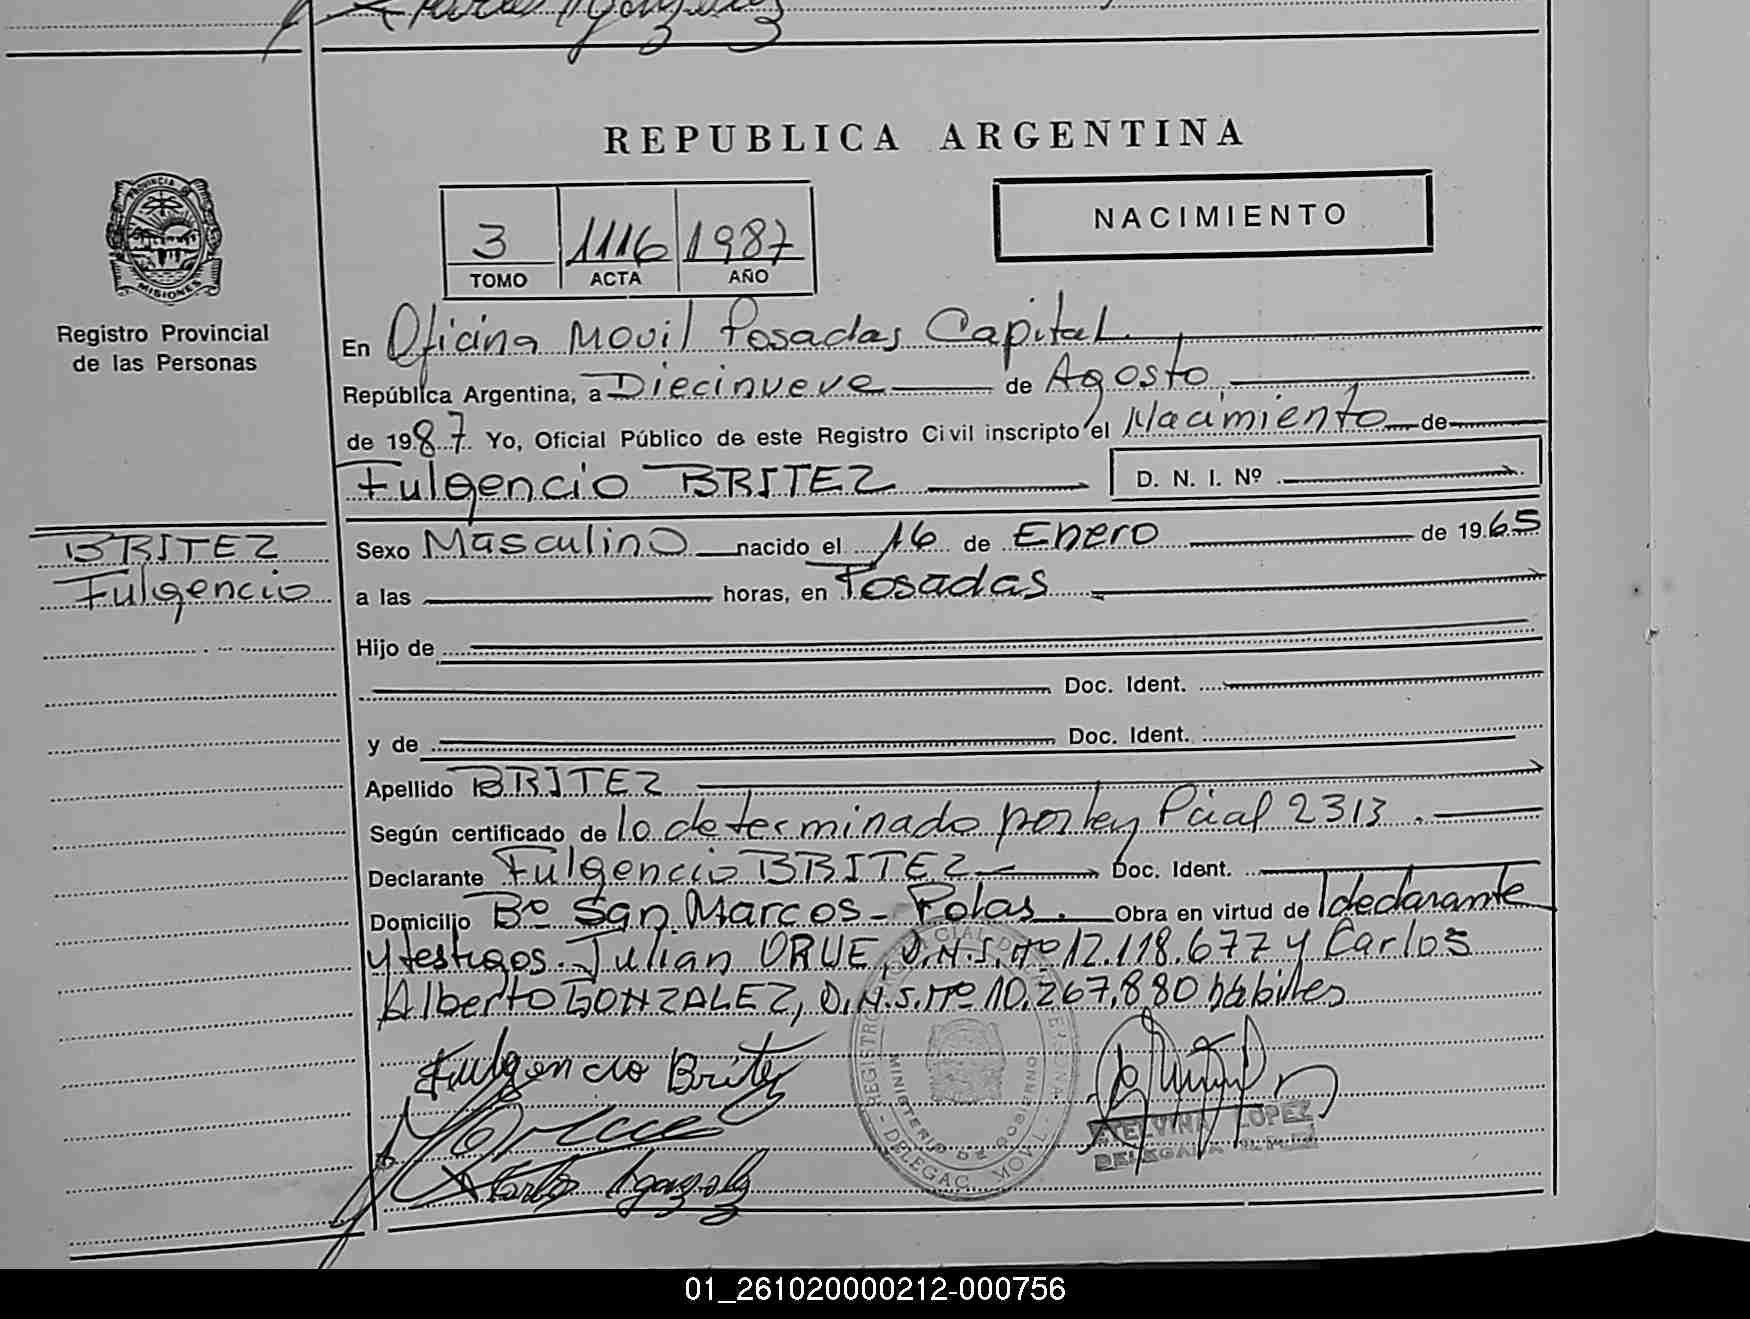 REPUBLICA ARGENTINA
PROVINCIA DE
MISIONES
Registro Provincial
de las Personas
3 1116 1987
TOMO ACTA AÑO
NACIMIENTO
En Oficina Movil Posadas Capital
República Argentina, a Diecinueve de Agosto
de 1987 Yo, Oficial Público de este Registro Civil inscripto el Nacimiento de
Fulgencio BRITEZ D. N. I. Nº
BRITEZ
Fulgencio
Sexo Masculino nacido el 16 de Enero de 1965
a las horas, en Posadas
Hijo de
Doc. Ident.
y de Doc. Ident.
Apellido BRITEZ
Según certificado de lo determinado por ley Pcial 2313.
Declarante Fulgencio BRITEZ Doc. Ident.
Domicilio Bº San Marcos - Pdas. Obra en virtud de declarante
y testigos. Julian ORUE, D.N.I. Nº 12.118.677 y Carlos
Alberto GONZALEZ, D.N.I. Nº 10.267.880 hábiles
Fulgencio Britez
MINISTERIO DE GOBIERNO
DELEGAC. MOVIL
ETELVINA LOPEZ
DELEGADA
01_261020000212-000756